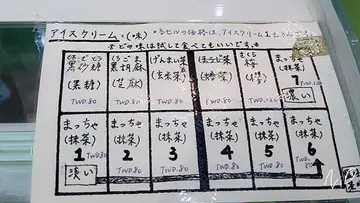 アイスクリーム:(味)
※どの味は試して食べてもいいです。※
くろざとう くろごま げんまい茶 ほうじ茶 さくら まっちゃ
黒砂糖 黒胡麻 (玄米茶) 桜 (抹茶)
(黑糖) (芝麻) 7
TWD.80 TWD.80 TWD.80 TWD.80 TWD.80 濃い
まっちゃ まっちゃ まっちゃ まっちゃ まっちゃ まっちゃ
(抹茶) (抹茶) (抹茶) (抹茶) (抹茶) (抹茶)
1 2 3 4 5 6
TWD.80 TWD.80 TWD.80 TWD.80 TWD.80 TWD.80
淡い